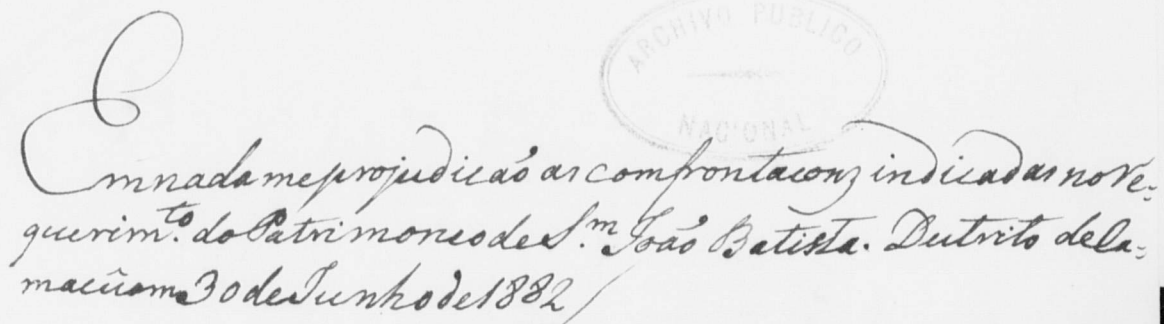 ARCHIVO PUBLICO
NACIONAL
Em nada me projudicaõ as comfrontaconz indicadas no Re=
querim.to do Patrimoneo de S.m Joaõ Batista. Dutrito de Ca=
30 de Junho de 1882